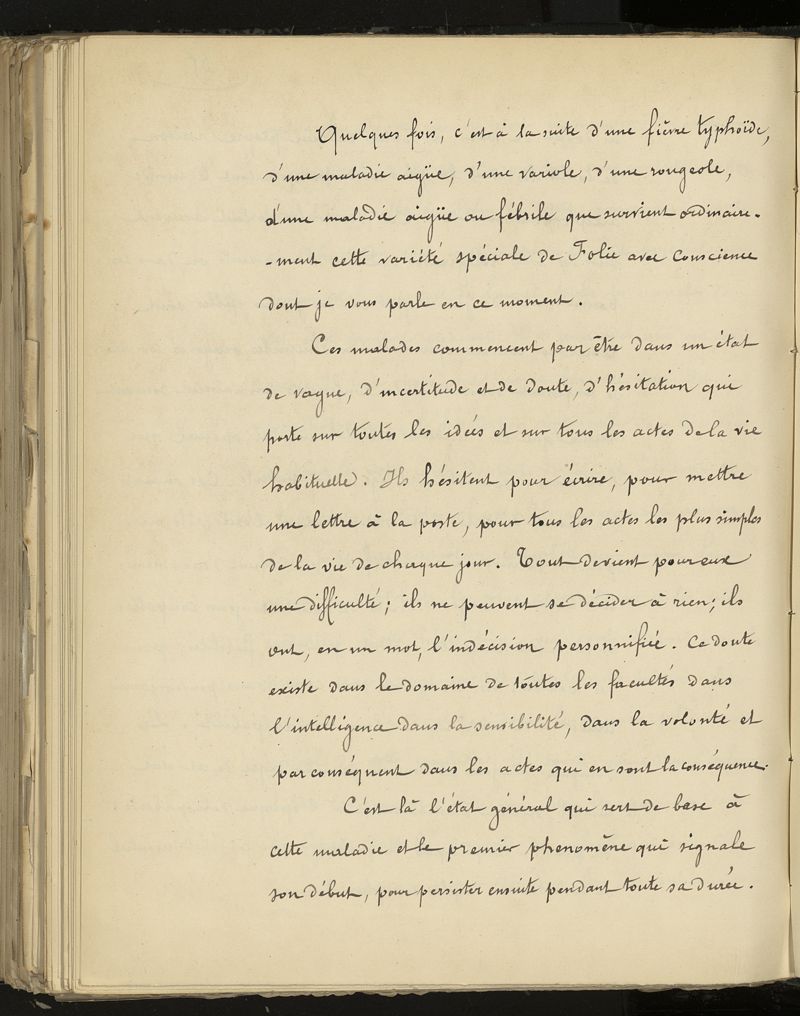 Quelques fois, c'est à la suite d'une fièvre typhoïde,
d'une maladie aigüe, d'une variole, d'une rougeole,
d'une maladie aigüe ou fébrile que survient ordinaire-
-ment cette variété spéciale de Folie avec Conscience
dont je vous parle en ce moment.
Ces malades commencent par être dans un état
de vague, d'incertitude et de doute, d'hésitation qui
porte sur toutes les idées et sur tous les actes de la vie
habituelle. Ils hésitent pour écrire, pour mettre
une lettre à la poste, pour tous les actes les plus simples
de la vie de chaque jour. Tout devient pour eux
une difficulté; ils ne peuvent se décider à rien; ils
ont, en un mot, l'indécision personnifiée. Ce doute
existe dans le domaine de toutes les facultés dans
l'intelligence dans la sensibilité, dans la volonté et
par conséquent dans les actes qui en sont la conséquence.
C'est là l'état général qui sert de base à
cette maladie et le premier phenomène qui signale
son début, pour persister ensuite pendant toute sa durée.